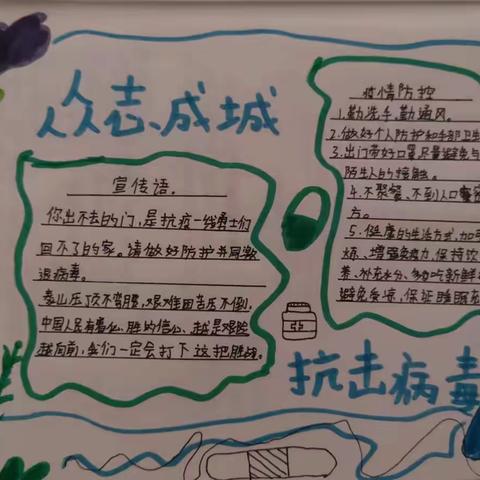 众志成城
宣传语.
你出不去的门,是抗疫一线勇士们
回不了的家。请做好防护共同激
退病毒。
泰山压顶不弯腰,艰难困苦压不倒.
中国人民有毒心,胜的信心,越是艰险
越向前,我们一定会打下这把胜战。
疫情防控
1.勤洗手,勤通风。
2.做好个人防护和手部卫生
3.出门带好口罩尽量避免与
陌生人的接触。
4.不聚餐、不到人口
方。
5.健康的生活方式,加
炼、增强免疫力,保持饮
养、补充水分、多吃新鲜
避免 保证睡眠充
抗击病毒